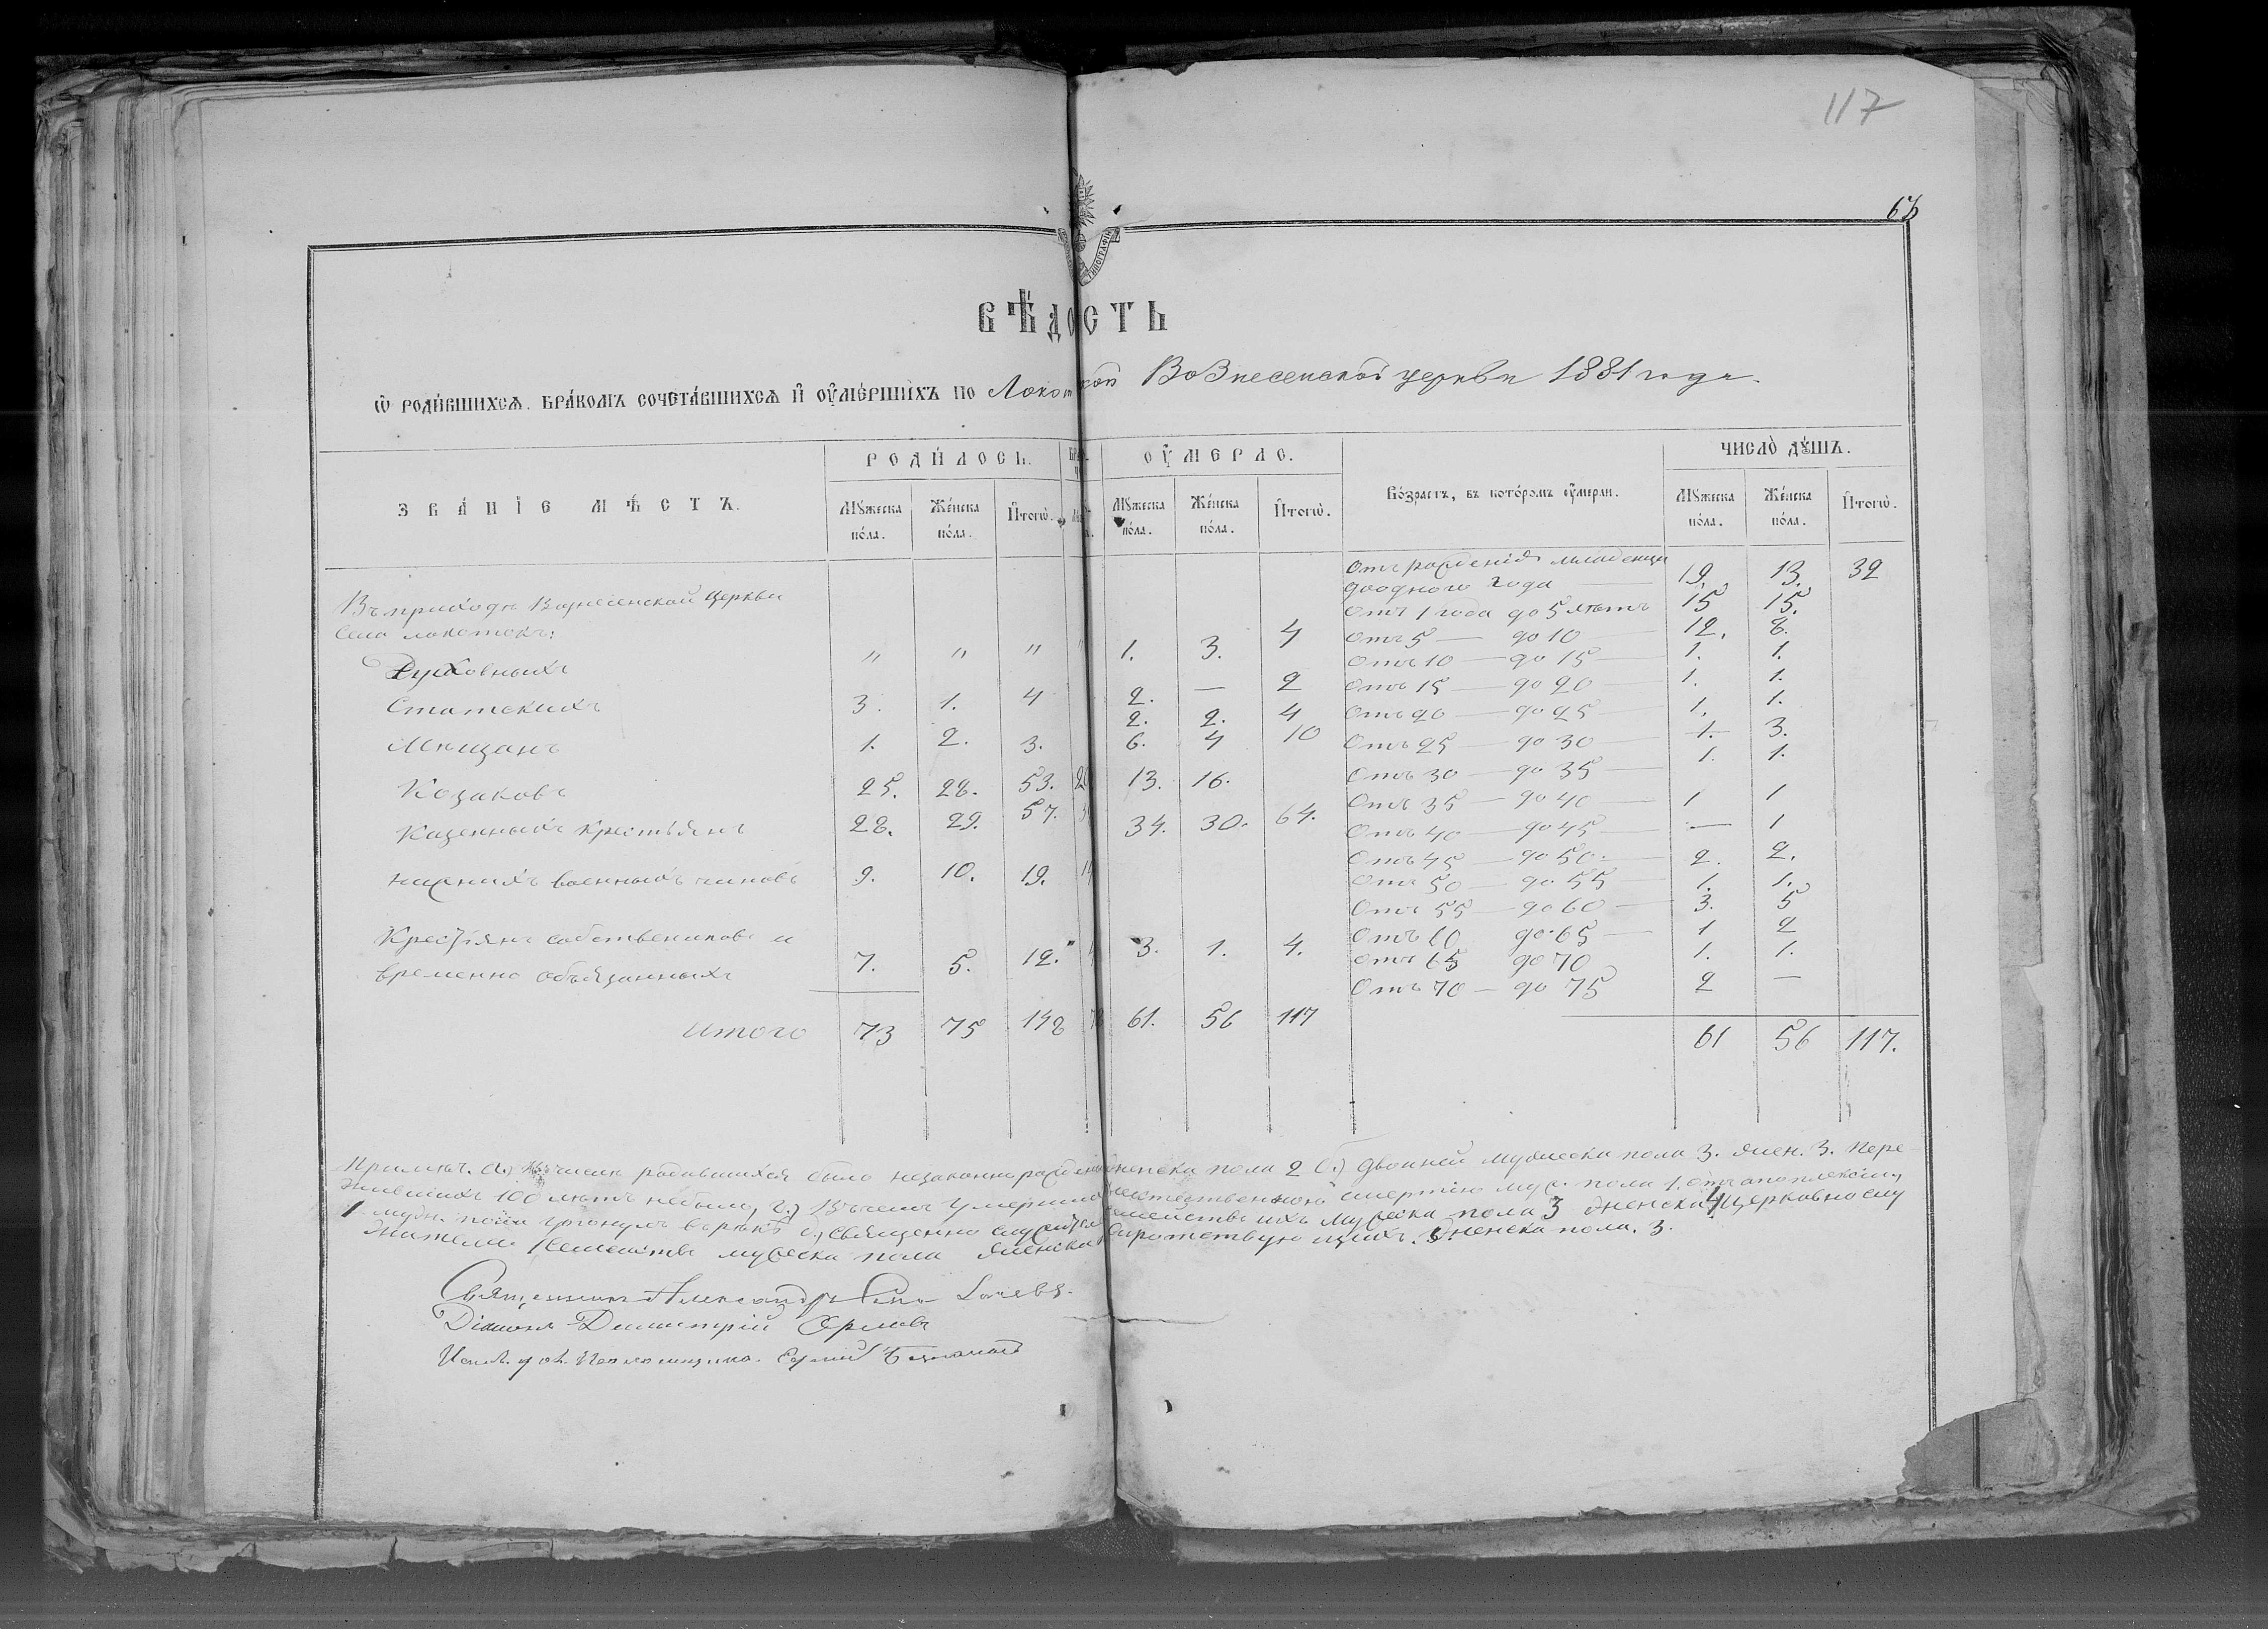 117
63
ВѢДОСТЬ
Ѡ РОДИВШИХСѦ, БРАКОМЪ СОЧЕТАВШИХСѦ И ОУМЕРШИХЪ ПО Локотской Вознесенской церкви 1881 года.
ЗВАНІЕ МѢСТЪ. РОДИЛОСЬ. ОУМЕРЛО. Возрастъ, въ которомъ оумерли. ЧИСЛО ДУШЪ.
Мужеска пола. Женска пола. Итогѡ. Мужеска пола. Женска пола. Итогѡ. Мужеска пола. Женска пола. Итогѡ.
Въ приходѣ Вознесенской церкви
села Локотокъ:
Духовныхъ " " " 1. 3. 4
Статскихъ 3. 1. 4 2. — 2
Мещанъ 1. 2. 3. 2. 2. 4
6. 4 10
Козаковъ 25. 28. 53. 13. 16.
Казенныхъ крестьянъ 28. 29. 57. 34. 30. 64.
нижнихъ военныхъ чиновъ 9. 10. 19.
Крестьянъ собствениковъ и
временно обязанныхъ 7. 5. 12. 3. 1. 4.
Итого 73 75 148 61. 56 117
Отъ рожденія младенцы
до одного года — 19. 13. 32
Отъ 1 года до 5 лѣтъ 15 15.
Отъ 5 — до 10 — 12. 8.
Отъ 10 — до 15 — 1. 1.
Отъ 15 — до 20 — 1. 1.
Отъ 20 — до 25 — 1. 1.
Отъ 25 — до 30 — 1. 3.
Отъ 30 — до 35 — 1. 1.
Отъ 35 — до 40 — 1 1
Отъ 40 — до 45 — — 1
Отъ 45 — до 50. — 2. 2.
Отъ 50 — до 55 — 1. 1.
Отъ 55 — до 60 — 3. 5
Отъ 60 до 65 — 1 2
Отъ 65 до 70 1. 1.
Отъ 70 — до 75 2 —
61 56 117.
Примѣч. а) Въ числѣ родившихся было незаконнорожден женска пола 2 б.) двойней мужеска пола 3. жен. 3. Пере
жившихъ 100 лѣтъ небыло, г.) Въ числѣ умершихъ неестественною смертію муж. пола 1. отъ апоплексіи,
1 мужс. пола утонулъ въ рѣкѣ д.) Священно служител семейства ихъ мужеска пола 3 женска 4 церковнослу
жителей семейства мужеска пола женска сиротствующихъ. женска пола. 3.
Священникъ Александръ
Діаконъ Димитрій Орловъ
Исп. д. Псаломщика